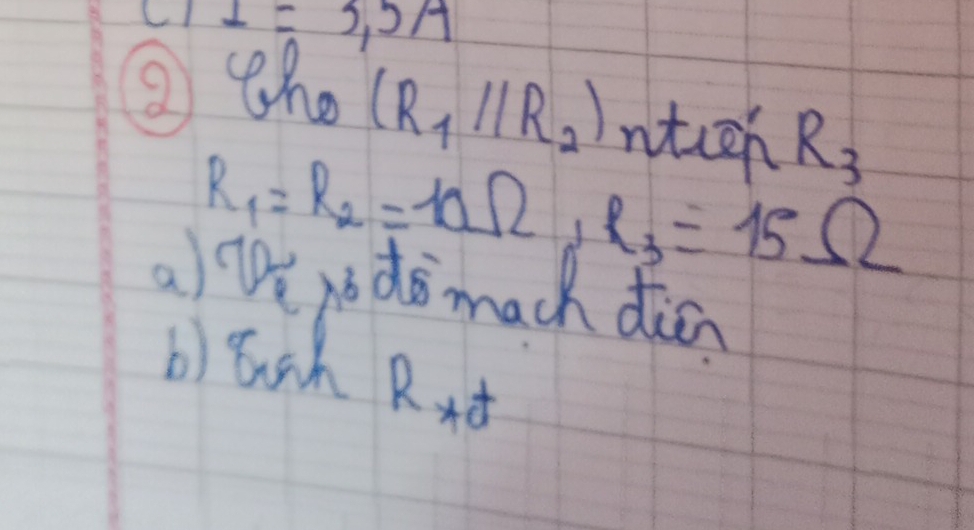 c) I = 3,5A
② Cho (R₁ // R₂) ntiếp R₃
R₁ = R₂ = 10Ω, R₃ = 15Ω
a) Vẽ sơ đồ mạch điện
b) Tính R_tđ